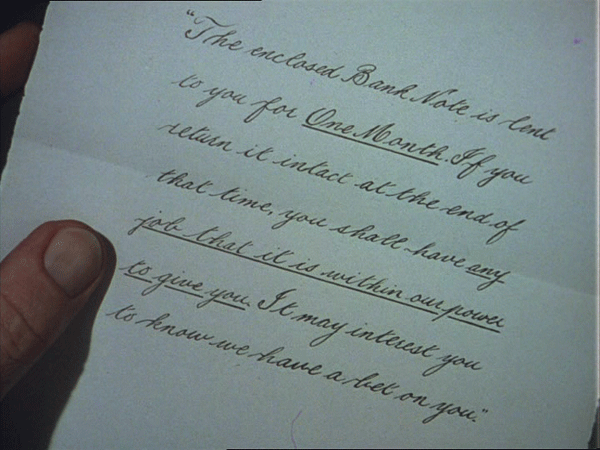 "The enclosed Bank Note is lent
to you for One Month. If you
return it intact at the end of
that time, you shall have any
job that it is within our power
to give you. It may interest you
to know we have a bet on you."